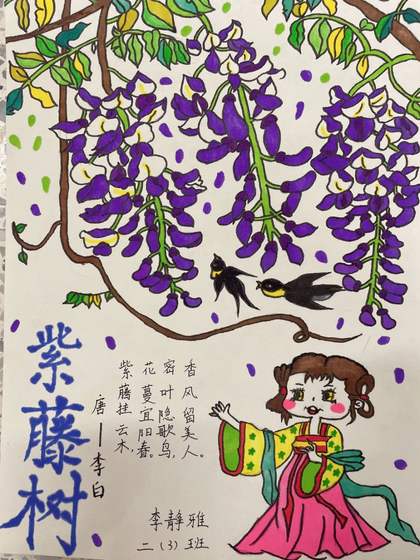 紫藤树
唐—李白
紫藤挂云木，
花蔓宜阳春。
密叶隐歌鸟，
香风留美人。
李静雅
二（3）班